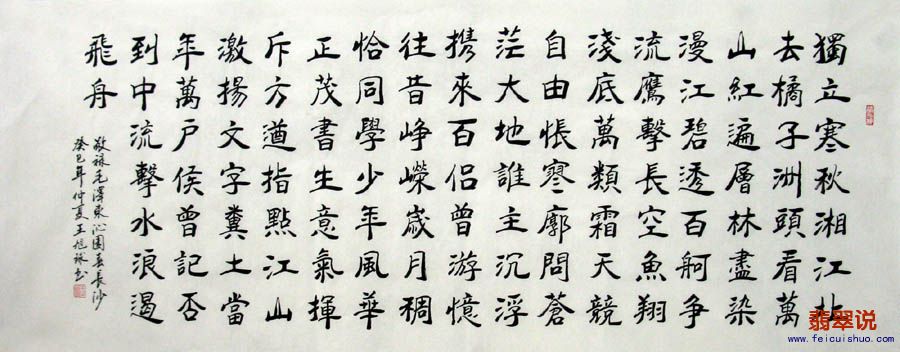 獨立寒秋湘江北
去橘子洲頭看萬
山紅遍層林盡染
漫江碧透百舸争
流鷹擊長空魚翔
淺底萬類霜天競
自由悵寥廓問蒼
茫大地誰主沉浮
携來百侣曾游憶
往昔峥嶸歲月稠
恰同學少年風華
正茂書生意氣揮
斥方遒指點江山
激揚文字糞土當
年萬户侯曾記否
到中流擊水浪遏
飛舟
敬録毛澤東沁園春長沙
癸巳年仲夏王旭书
翡翠说
www.feicuishuo.com